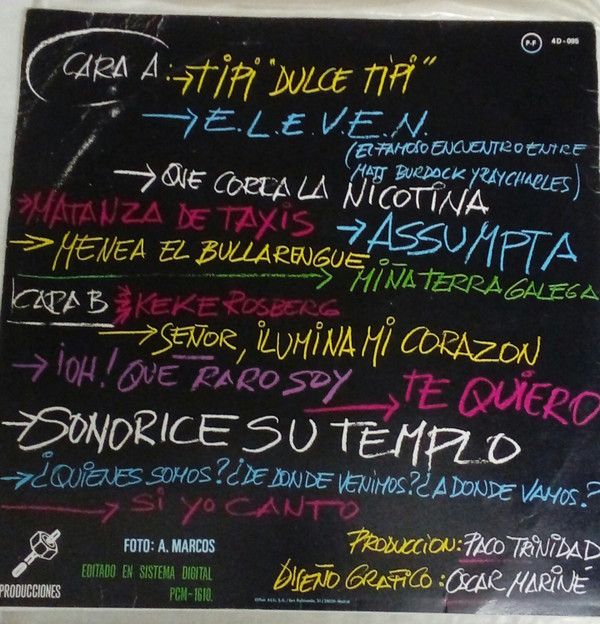 P-F 4D-095
CARA A: → TIPI "DULCE TIPI"
→ E.L.E.V.E.N.
(EL FAMOSO ENCUENTRO ENTRE
MATJ BURDOCK Y RAY CHARLES)
→ QUE CORRA LA NICOTINA
→ MATANZA DE TAXIS
→ ASSUMPTA
→ MENEA EL BULLARENGUE
→ MIÑA TERRA GALEGA
CARA B → KEKE ROSBERG
→ SEÑOR, ILUMINA MI CORAZON
→ ¡OH! QUE RARO SOY
→ TE QUIERO
→ SONORICE SU TEMPLO
→ ¿QUIENES SOMOS? ¿DE DONDE VENIMOS? ¿A DONDE VAMOS?
→ SI YO CANTO
PRODUCCIONES
FOTO: A. MARCOS
EDITADO EN SISTEMA DIGITAL
PCM-1610.
PRODUCCION: PACO TRINIDAD
DISEÑO GRAFICO: OSCAR MARINÉ